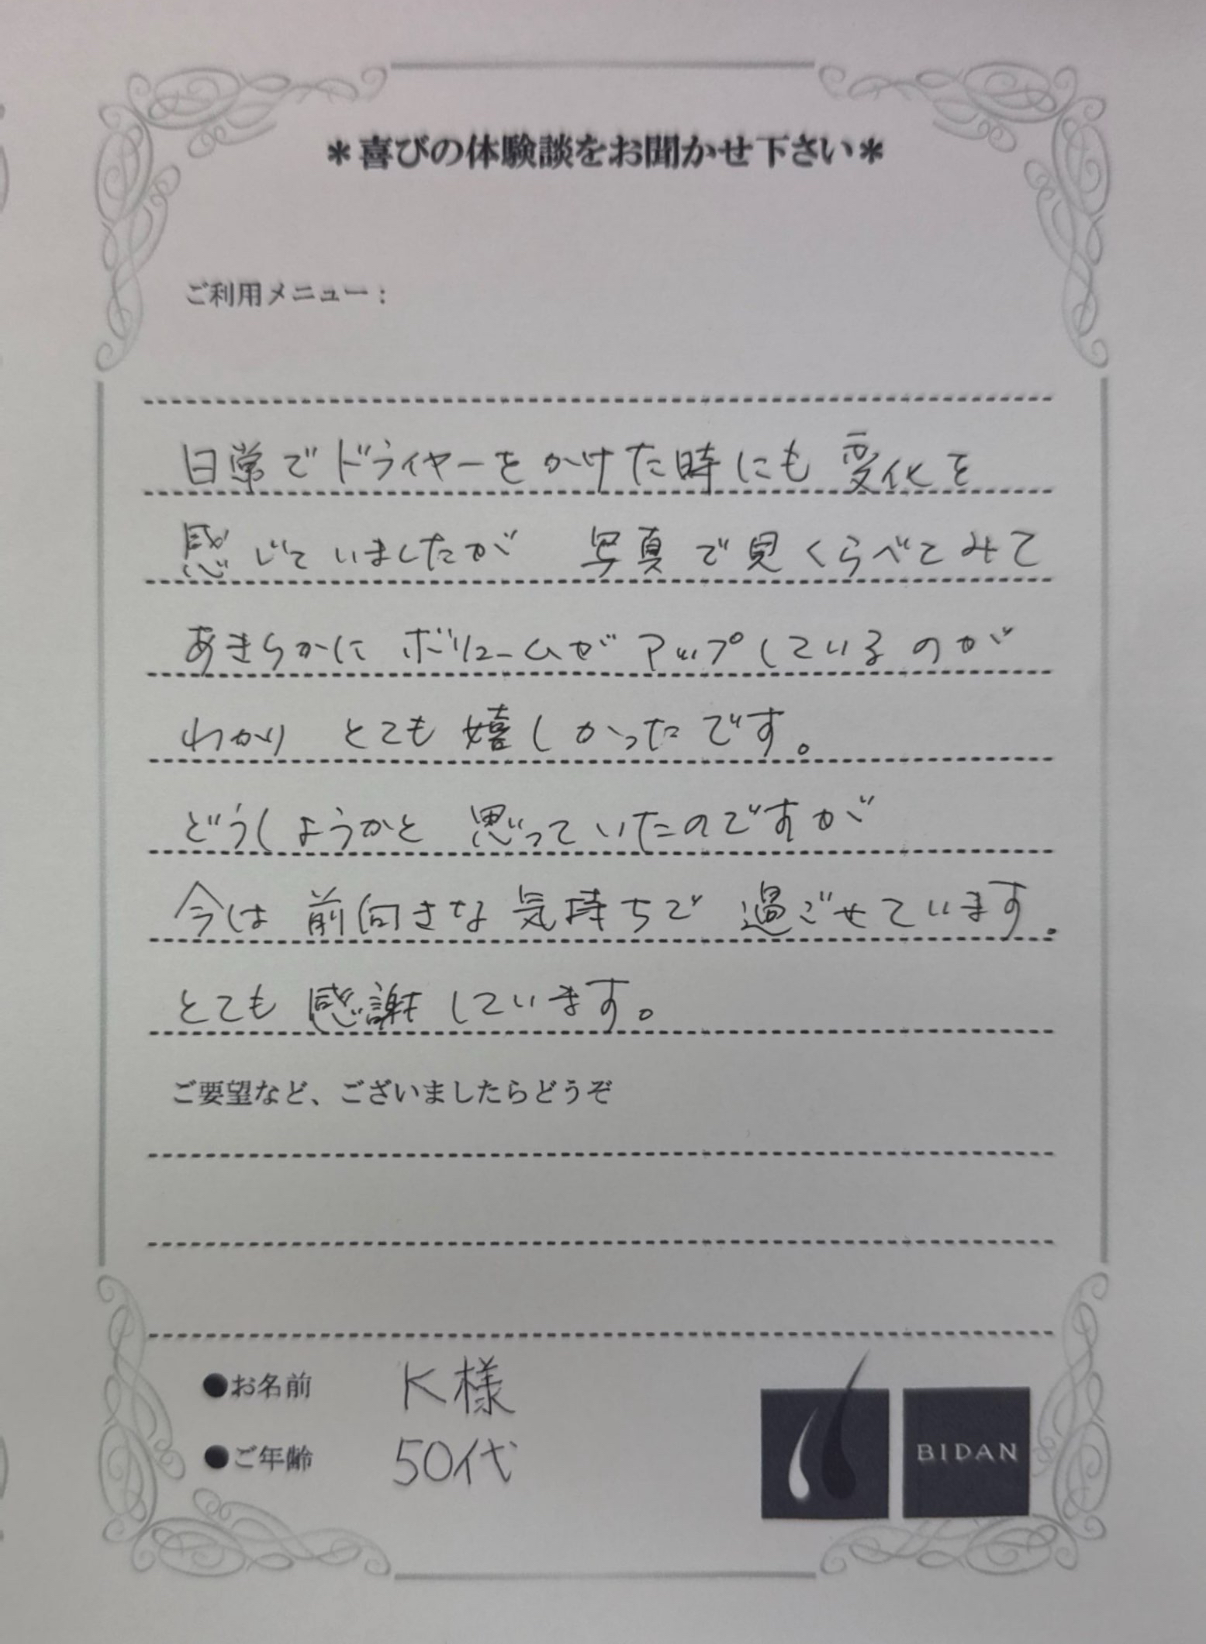 ＊喜びの体験談をお聞かせ下さい＊
ご利用メニュー：
日常でドライヤーをかけた時にも変化を
感じていましたが 写真で見くらべてみて
あきらかにボリュームがアップしているのが
わかり とても嬉しかったです。
どうしようかと思っていたのですが
今は前向きな気持ちで過ごせています.
とても感謝しています。
ご要望など、ございましたらどうぞ
●お名前 K様
●ご年齢 50代
BIDAN